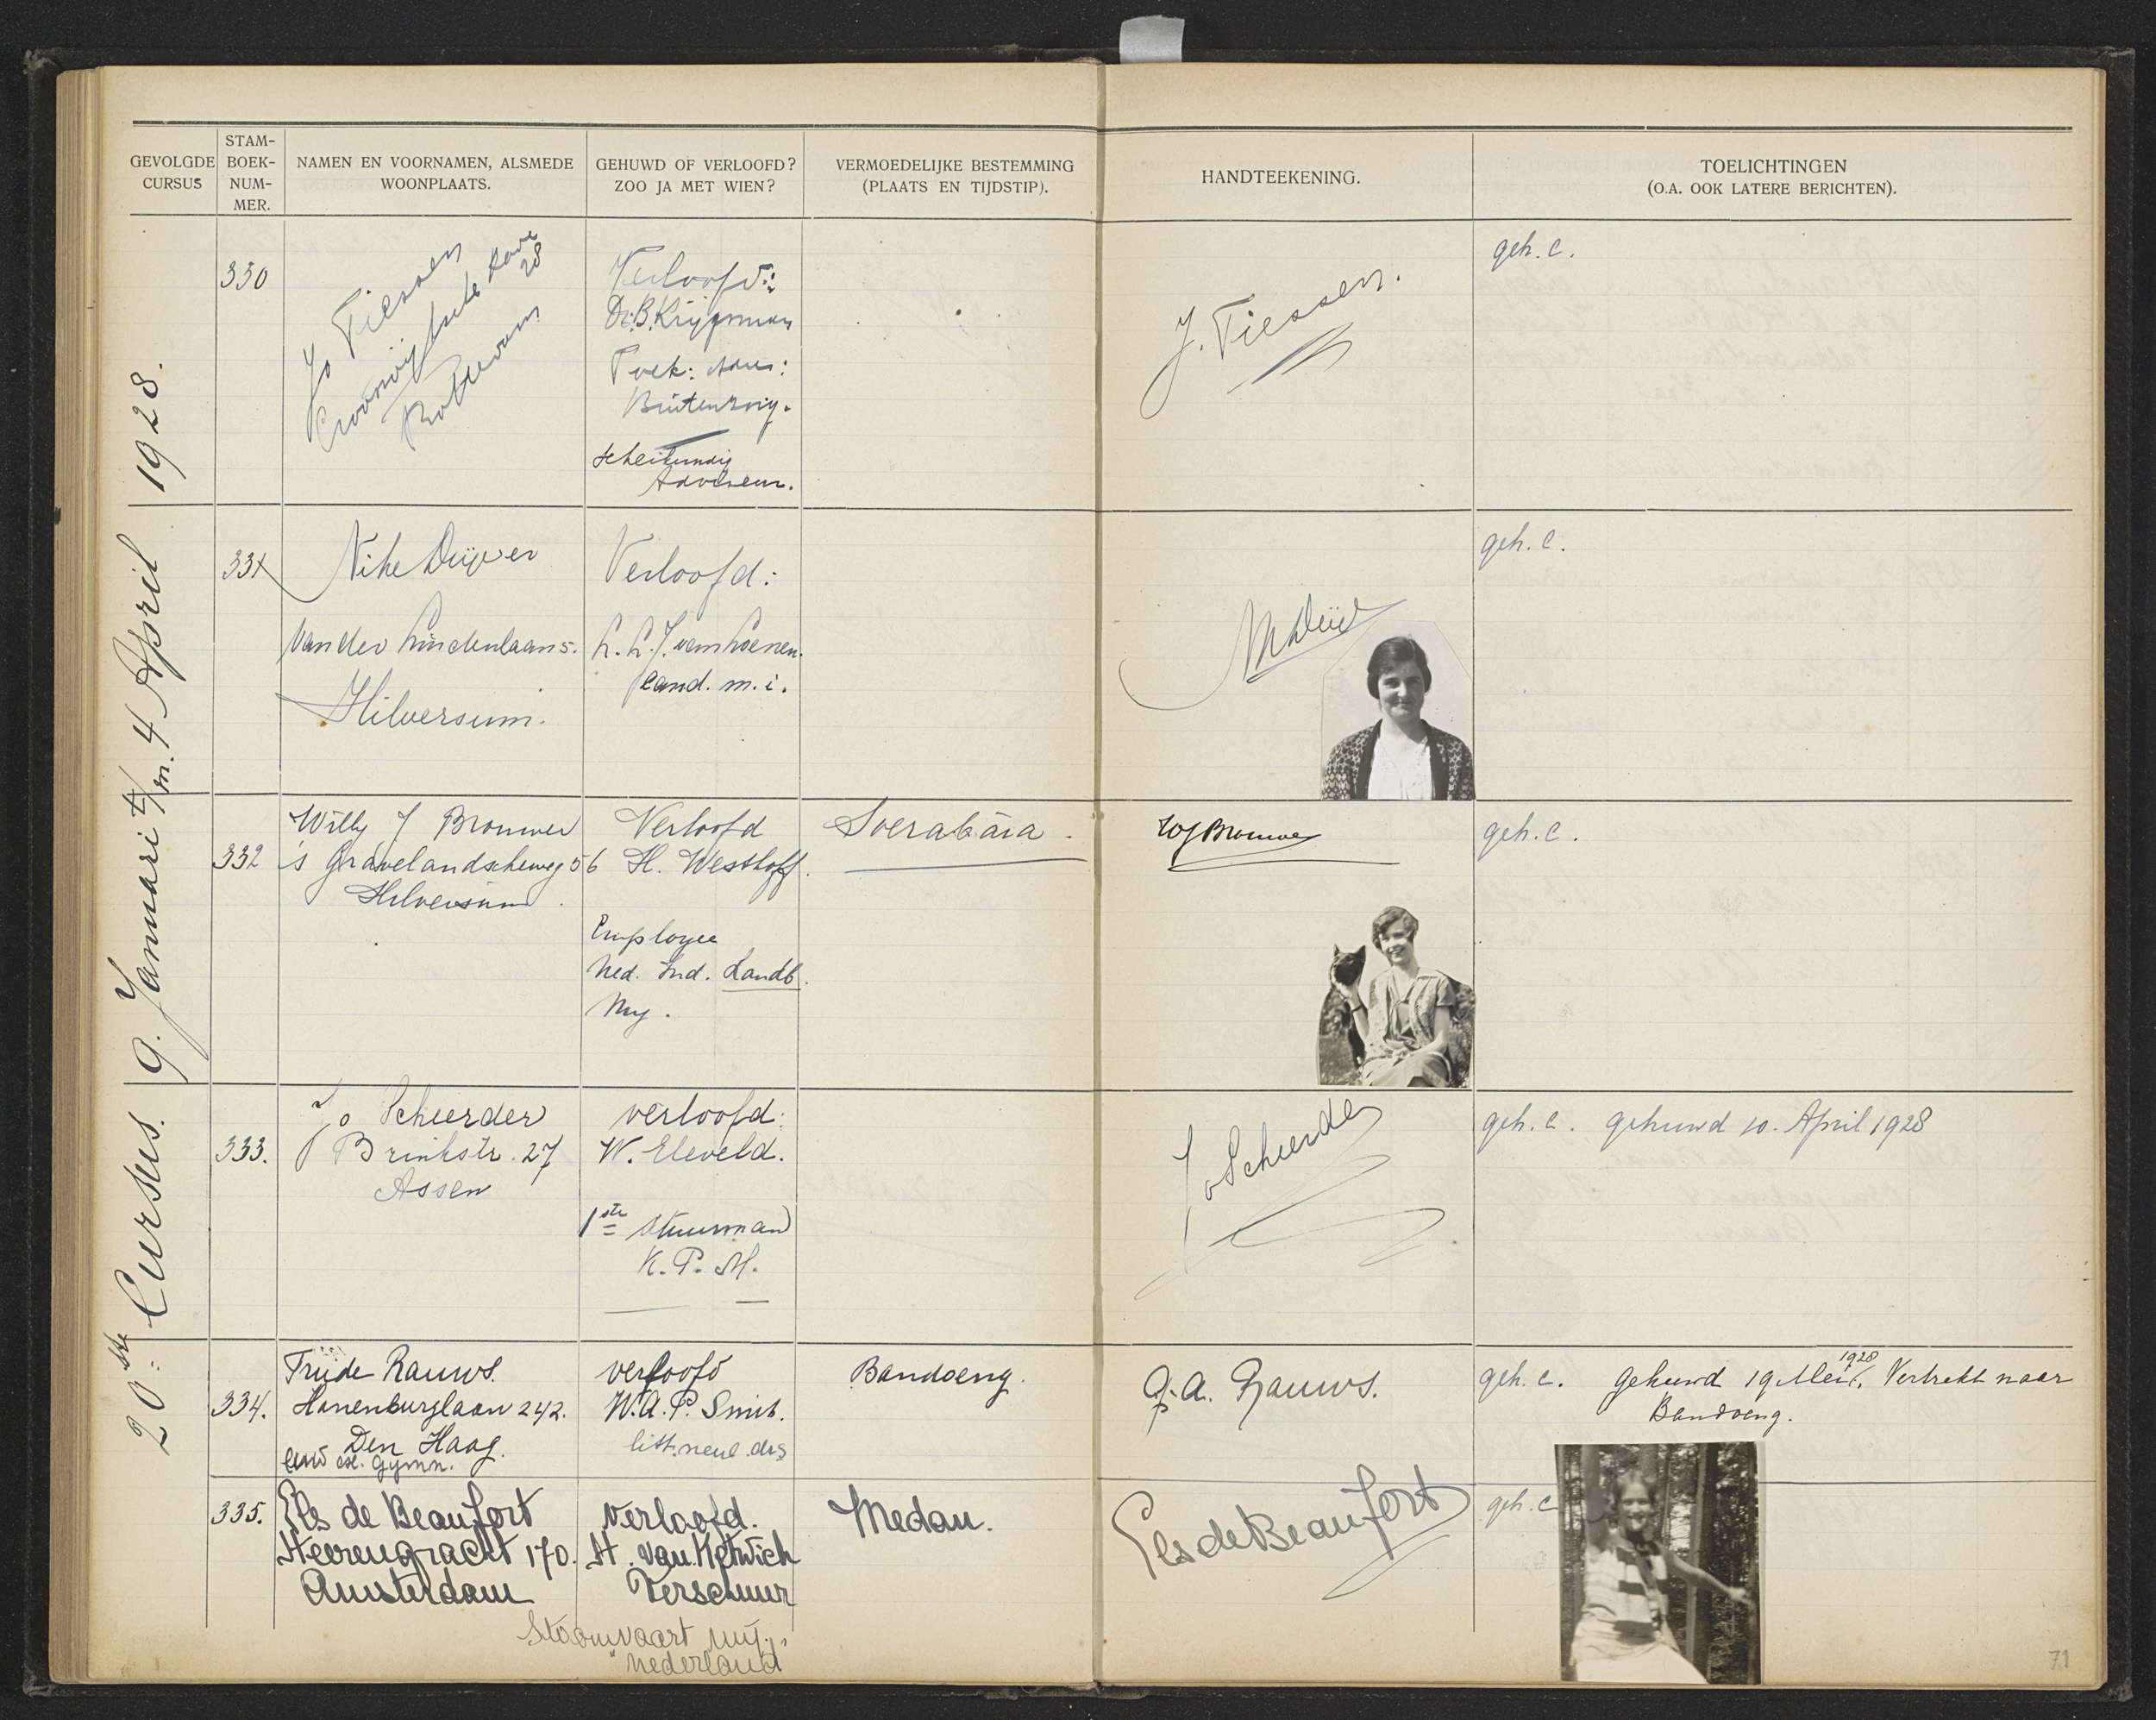 GEVOLGDE CURSUS
STAM-BOEK-NUM-MER.
NAMEN EN VOORNAMEN, ALSMEDE WOONPLAATS.
GEHUWD OF VERLOOFD? ZOO JA MET WIEN?
VERMOEDELIJKE BESTEMMING (PLAATS EN TIJDSTIP).
HANDTEEKENING.
TOELICHTINGEN (O.A. OOK LATERE BERICHTEN).
20ste Cursus. 9. Januari t/m. 4 April 1928.
330
Jo Tiessen
28
Verloofd:
Dr. B. Krijgsman
Buitenzorg.
Scheikundig
Adviseur.
J. Tiessen.
geh. c.
331
van der Lindenlaan 5.
Hilversum.
Verloofd:
cand. m. i.
geh. c.
332
Willy J Brouwer
's Gravelandscheweg 56
Hilversum
Verloofd
H. Westhoff.
Employee
Ned. Ind. Landb.
My.
Soerabaia.
WJBrouwer
geh. c.
333.
Jo Scheerder
Brinkstr. 27
Assen
verloofd:
W. Eleveld.
1ste stuurman
K. P. M.
Jo Scheerder
geh. c. gehuwd 10. April 1928
334.
Trude Rauws.
Hanenburglaan 242.
Den Haag.
gymn.
verloofd
W.A.P. Smit.
litt. neerl. drs
Bandoeng.
G.A. Rauws.
geh. c. Gehuwd 19 Mei 1928. Vertrekt naar
Bandoeng.
335.
Els de Beaufort
Heerengracht 170.
Amsterdam
Verloofd.
H. van Ketwich
Verschuur
Stoomvaart mij.
"Nederland"
Medan.
Els de Beaufort
geh. c
71